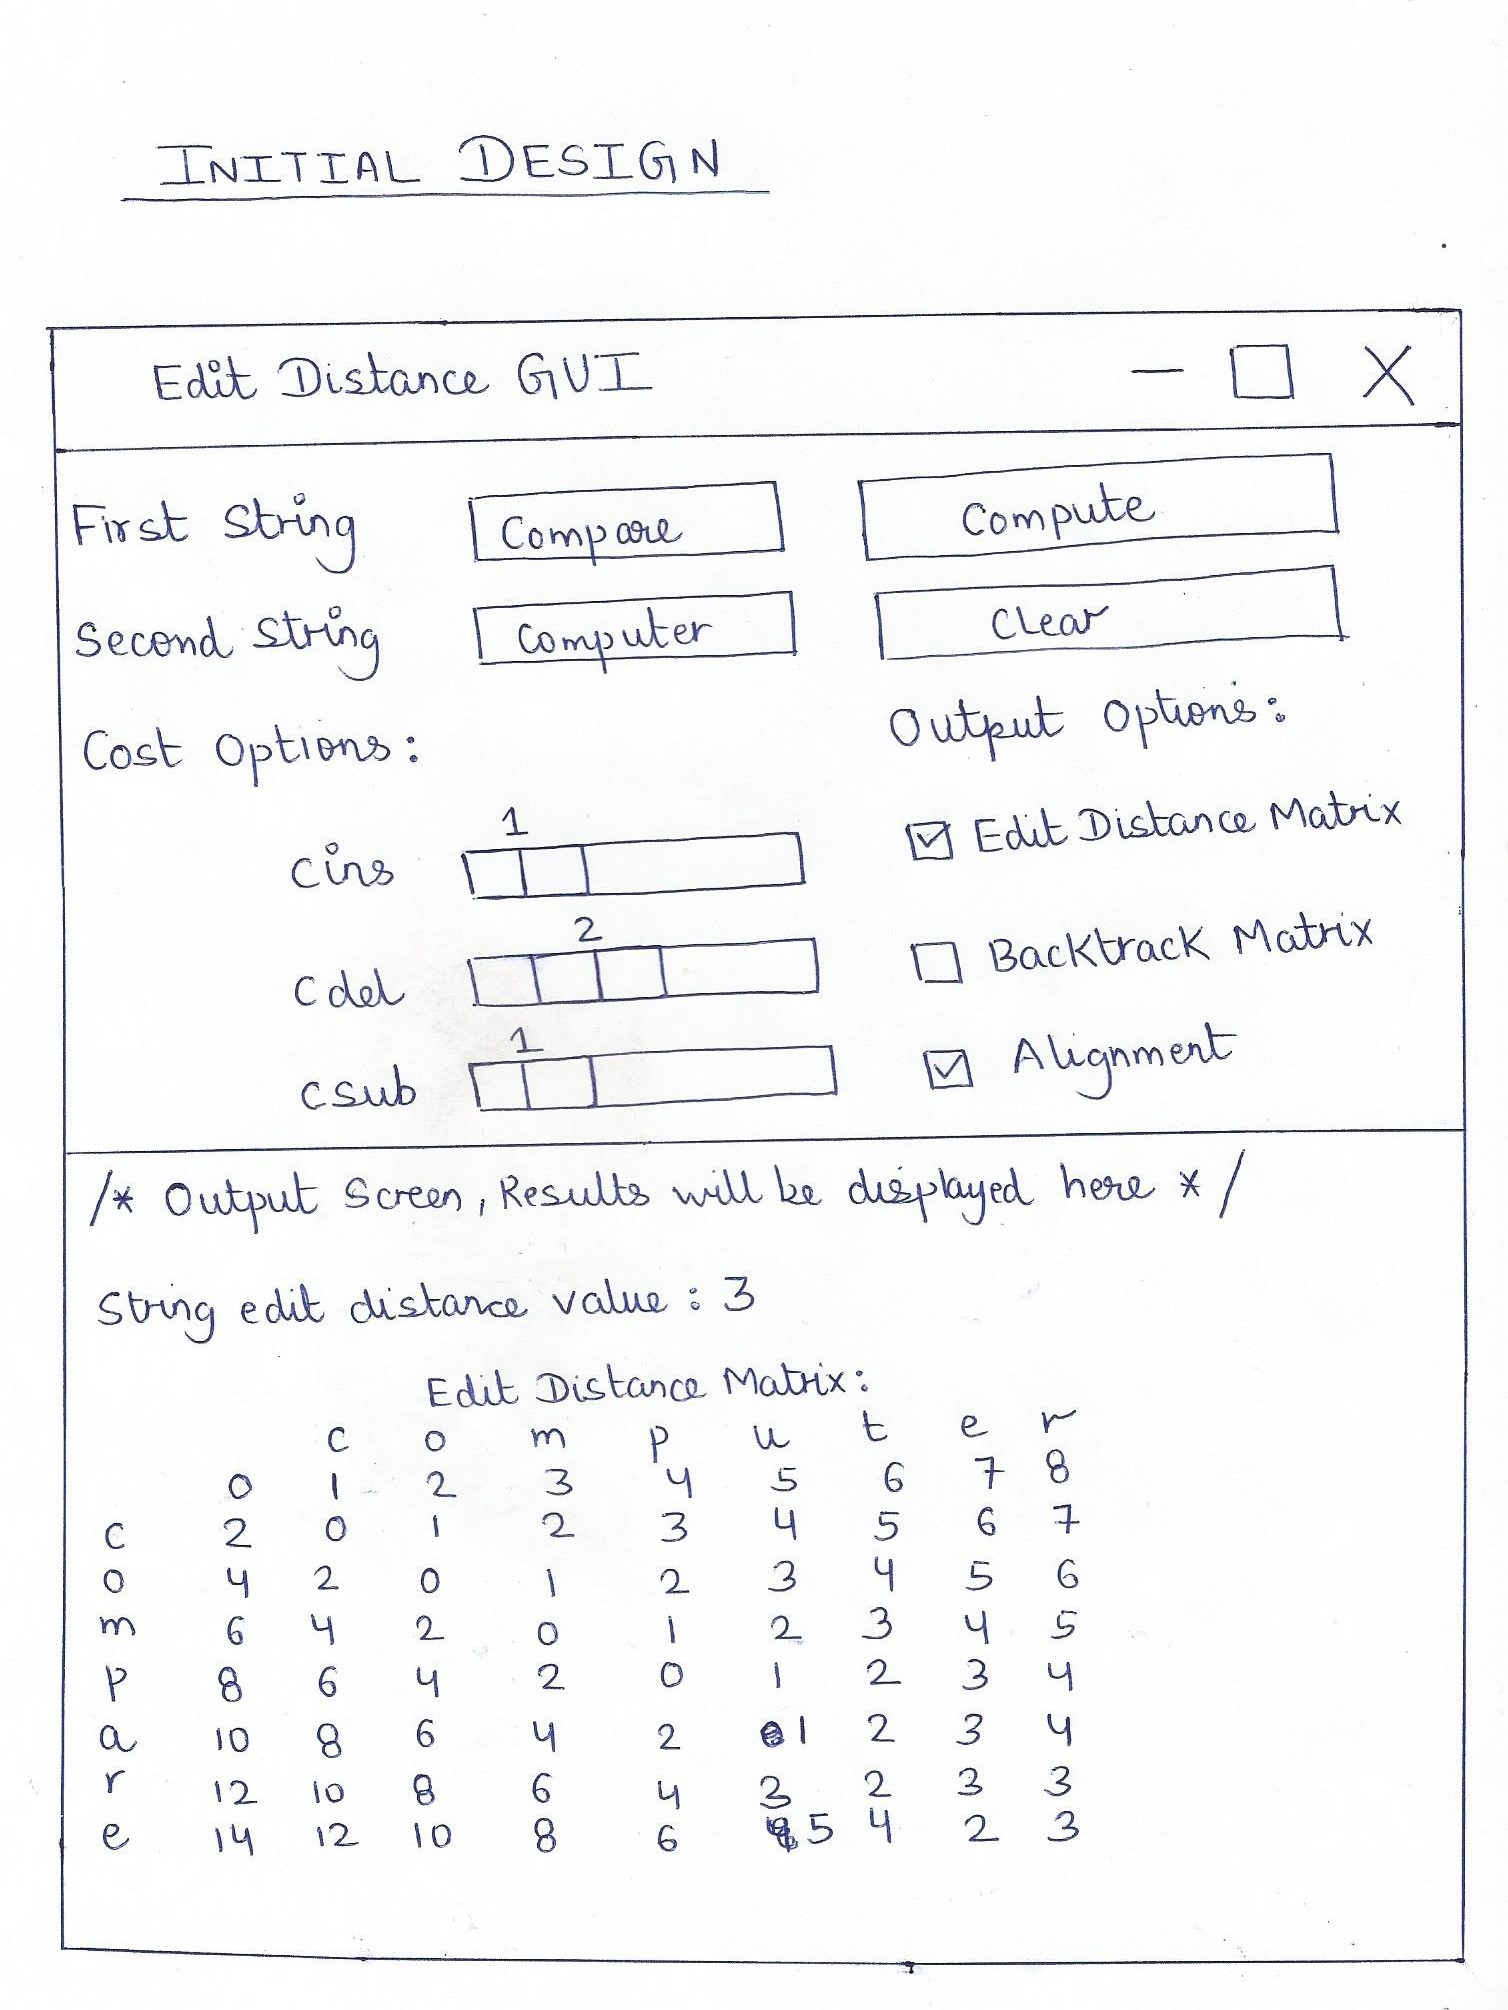 INITIAL DESIGN
Edit Distance GUI
First String Compare Compute
Second String Computer Clear
Cost Options: Output Options:
1
cins Edit Distance Matrix
2
cdel Backtrack Matrix
1
csub Alignment
/* Output Screen, Results will be displayed here */
String edit distance value : 3
Edit Distance Matrix:
c o m p u t e r
0 1 2 3 4 5 6 7 8
c 2 0 1 2 3 4 5 6 7
o 4 2 0 1 2 3 4 5 6
m 6 4 2 0 1 2 3 4 5
p 8 6 4 2 0 1 2 3 4
a 10 8 6 4 2 1 2 3 4
r 12 10 8 6 4 3 2 3 3
e 14 12 10 8 6 5 4 2 3